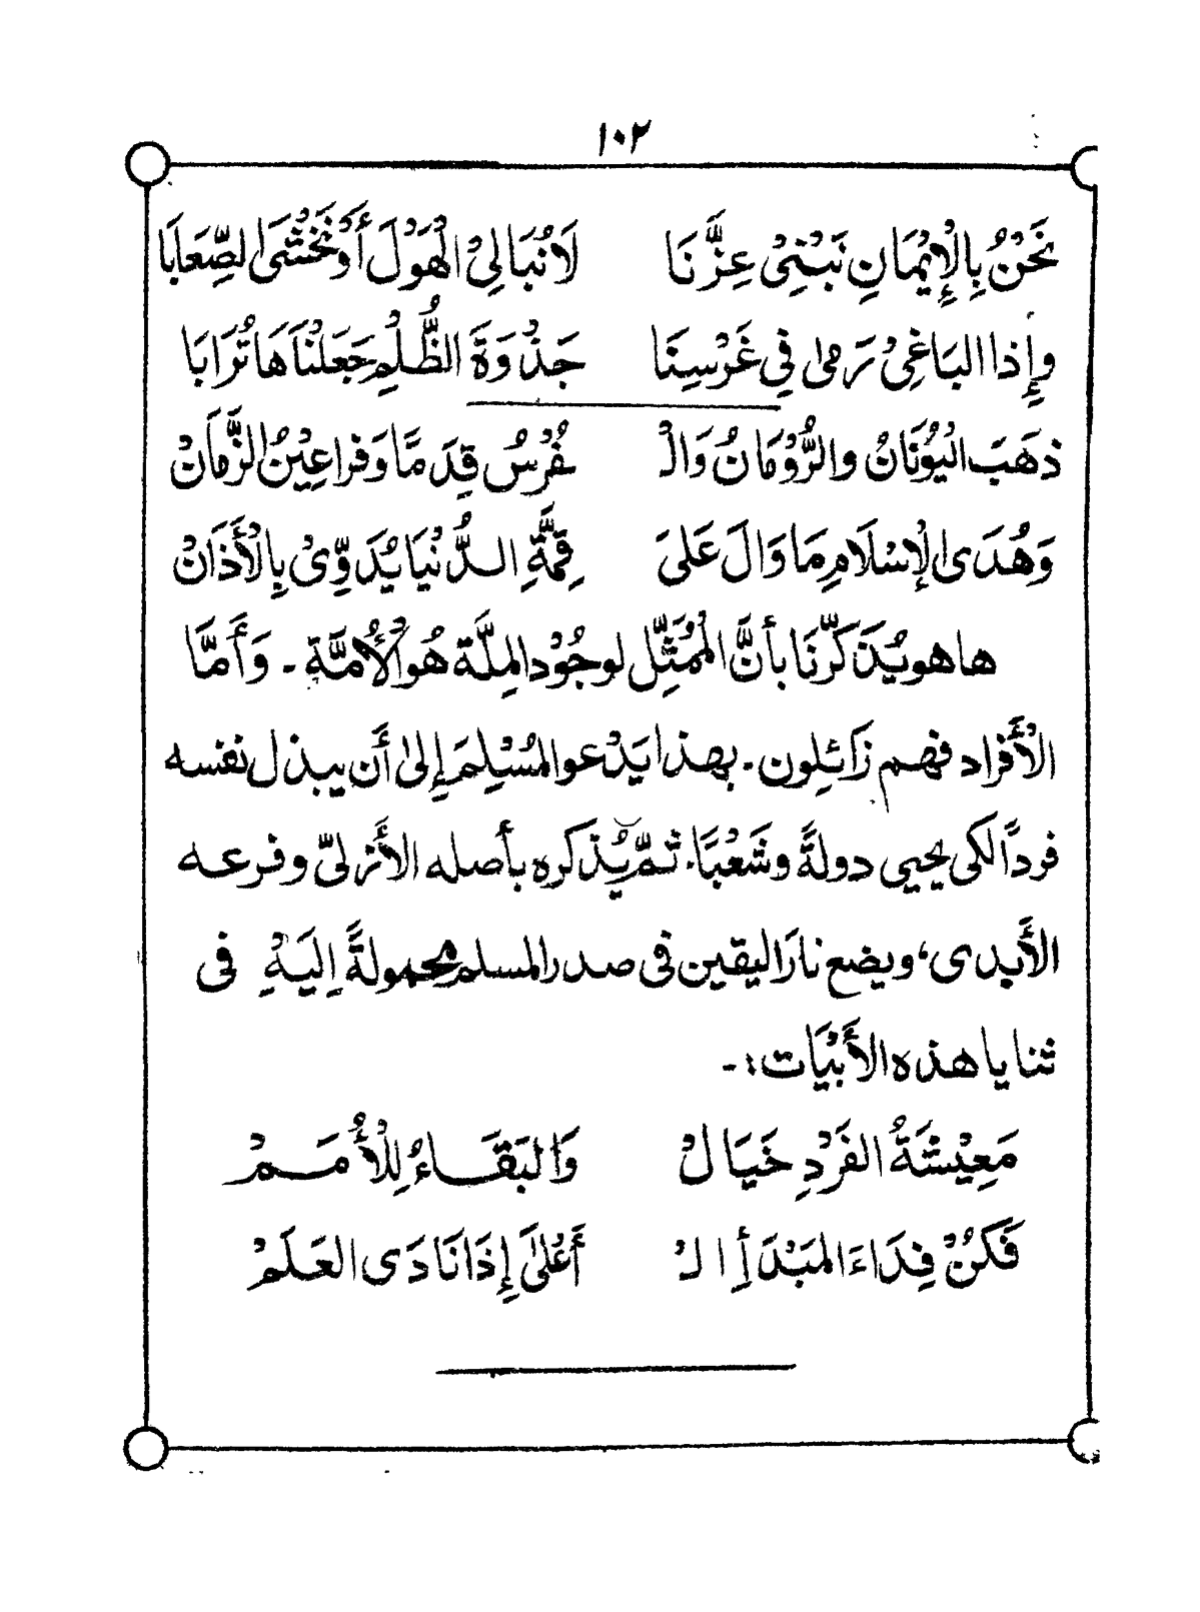 ١٠٢
نَحْنُ بِالْإِيْمَانِ نَبْنِيْ عِزَّنَا لَا نُبَالِيْ الْهَوْلَ أَوْ نَخْشَى الصِّعَابَا
وإِذا البَاغِيْ رَمىٰ فِي غَرْسِنَا جَذْوَةَ الظُّلْمِ جَعَلْنَاهَا تُرَابَا
ذهَبَ الْيُوْنَانُ والرُّوْمَانُ وَالْـ ـفُرْسُ قِدَمًا وَفراعِيْنُ الزَّمَانْ
وَهُدَى الْإسْلَامِ مَا وَالَ عَلىَ قِمَّةِ الدُّنْيَا يُدَوِّيْ بِالْأَذَانْ
ها هو يُذَكِّرنَا بأنَّ الْمُمَثِّل لوجُوْد المِلَّة هُو الْأُمَّةِ - وَأَمَّا
الْأَفراد فهم زَائِلون - بهذا يَدْعو المُسْلِمَ إِلىٰ أَن يبذل نفسه
فردًا لكى يحيى دولةً وشَعْبًا. ثمّ يُذكره بأصله الأَزلىّ وفرعه
الأَبدى، ويضع نارَ اليقين فى صدر المسلم محمولةً إِلَيْهِ فى
ثنايا هذه الأَبْيَات :-
مَعِيْشَةُ الفَرْدِ خَيَالْ وَالبَقَاءُ لِلْأُمَمْ
فَكُنْ فِدَاءَ المَبْدَأِ الْـ أَعْلىَٰ إِذَا نَادَى العَلَمْ